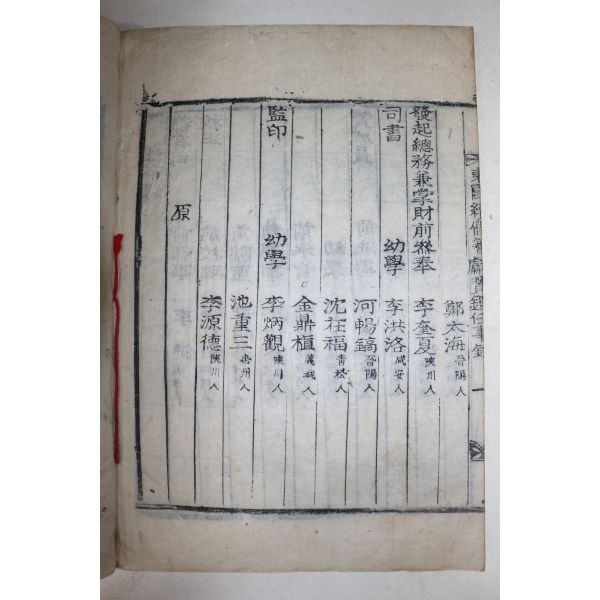 鄭太海晉陽人
發起總務兼掌財前參奉 李奎夏陜川人
司書 幼學 李洪洛咸安人
河暢鎬晉陽人
沈在福靑松人
金鼎植義城人
監印 幼學 李炳觀陜川人
池重三忠州人
李源德陜川人
原